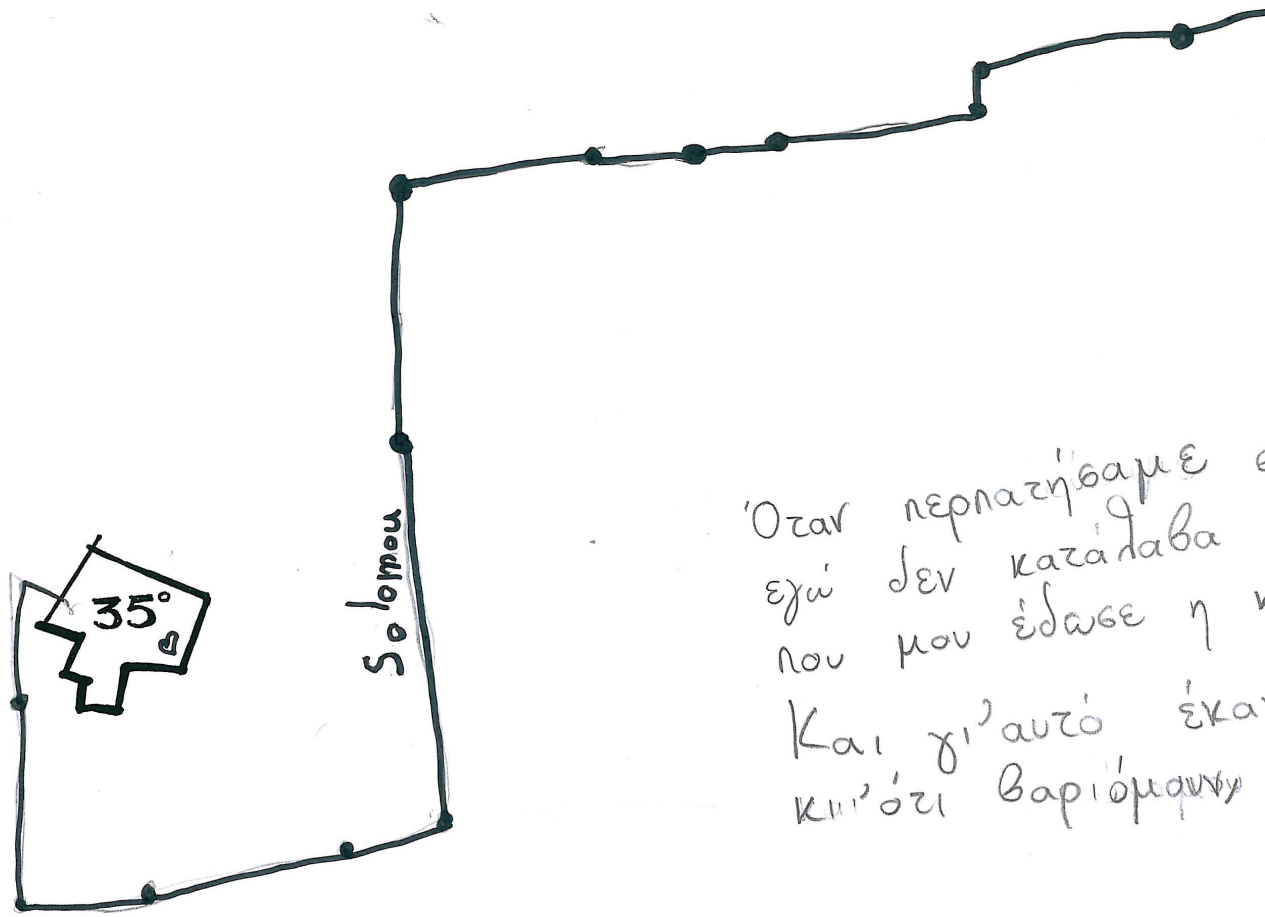 35°
Solomou
Όταν περπατήσαμε
εγώ δεν κατάλαβα
που μου έδωσε η
Και γι'αυτό
κι'ότι